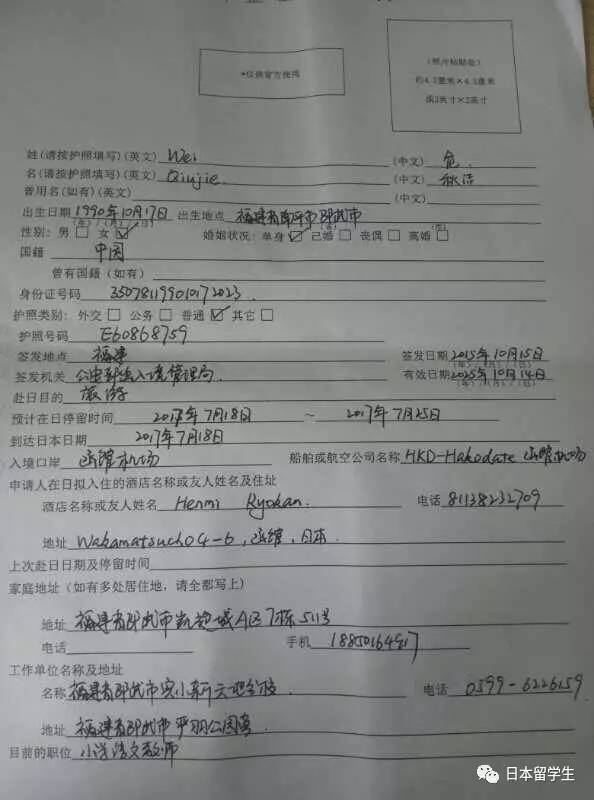 *仅供官方使用
(照片粘贴处)
约4.5厘米×4.5厘米
或2英寸×2英寸
姓(请按护照填写)(英文) Wei (中文) 危
名(请按护照填写)(英文) Qiujie (中文) 秋洁
曾用名(如有)(英文) (中文)
出生日期 1990年10月17日 出生地点 福建省南平市邵武市
(年)/(月)/(日) (省) (市)
性别：男□ 女☑ 婚姻状况：单身☑ 已婚□ 丧偶□ 离婚□
国籍 中国
曾有国籍（如有）
身份证号码 350781199010172023
护照类别：外交□ 公务□ 普通☑ 其它□
护照号码 E60868759
签发地点 福建 签发日期 2015年10月15日
(年)/(月)/(日)
签发机关 公安部出入境管理局 有效日期 2025年10月14日
(年)/(月)/(日)
赴日目的 旅游
预计在日停留时间 2017年7月18日 ～ 2017年7月25日
到达日本日期 2017年7月18日
入境口岸 函館机场 船舶或航空公司名称 HKD-Hakodate 函館机场
申请人在日拟入住的酒店名称或友人姓名及住址
酒店名称或友人姓名 Henmi Ryokan 电话 81138232709
地址 Wakamatsucho 4-6, 函館, 日本
上次赴日日期及停留时间
家庭地址（如有多处居住地，请全部写上）
地址 福建省邵武市凯旋城A区7栋511号
电话 手机 18850164917
工作单位名称及地址
名称 福建省邵武市实小 分校 电话 0599-6226159
地址 福建省邵武市 公园
目前的职位 小学语文教师
日本留学生